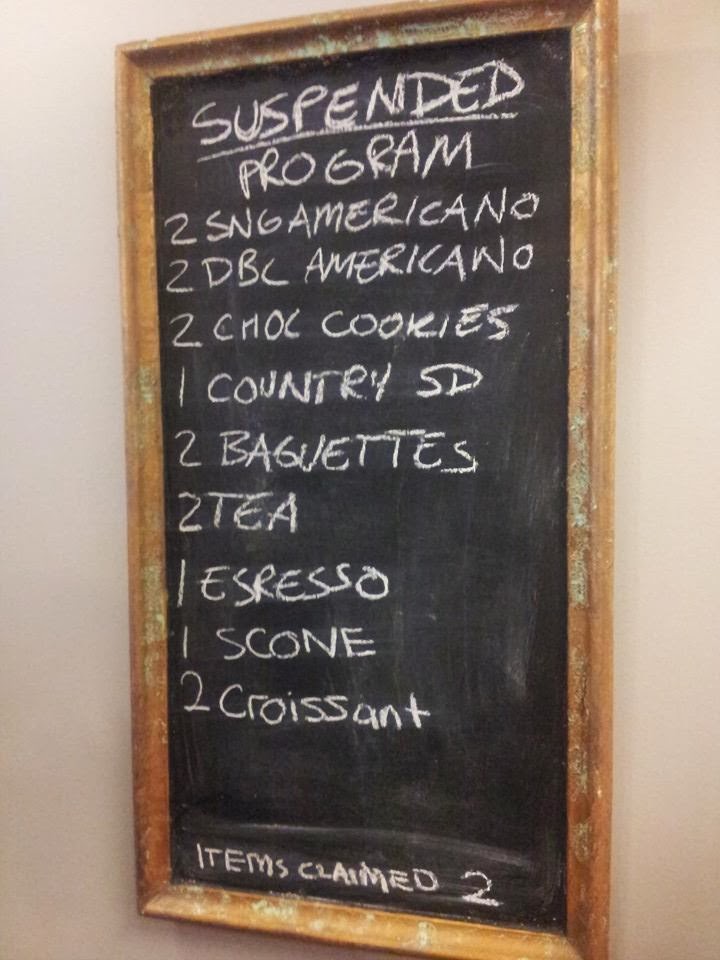 SUSPENDED
PROGRAM
2 SNG AMERICANO
2 DBL AMERICANO
2 CHOC COOKIES
1 COUNTRY SD
2 BAGUETTES
2 TEA
1 ESRESSO
1 SCONE
2 Croissant
ITEMS CLAIMED 2